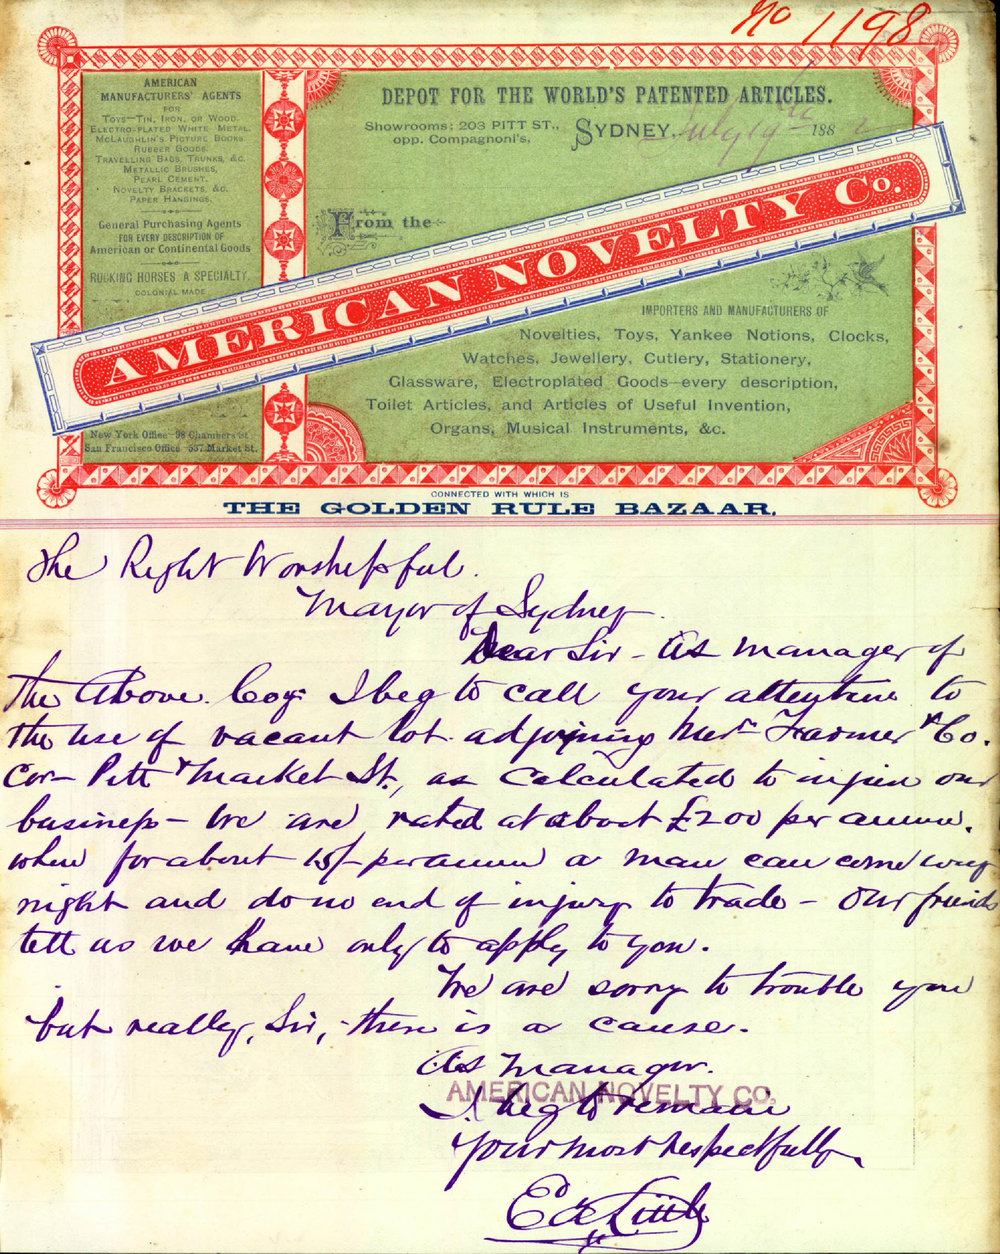 No 1198
AMERICAN
MANUFACTURERS' AGENTS
FOR
TOYS—TIN, IRON, OR WOOD.
ELECTRO-PLATED WHITE METAL.
MCLAUGHLIN'S PICTURE BOOKS
RUBBER GOODS.
TRAVELLING BAGS, TRUNKS, &C.
METALLIC BRUSHES,
PEARL CEMENT.
NOVELTY BRACKETS, &C.
PAPER HANGINGS.
General Purchasing Agents
FOR EVERY DESCRIPTION OF
American or Continental Goods
ROCKING HORSES A SPECIALTY.
COLONIAL MADE
DEPOT FOR THE WORLD'S PATENTED ARTICLES.
Showrooms: 203 PITT ST.,
opp. Compagnoni's,
SYDNEY, July 19th 1882
From the
AMERICAN NOVELTY Co.
IMPORTERS AND MANUFACTURERS OF
Novelties, Toys, Yankee Notions, Clocks,
Watches, Jewellery, Cutlery, Stationery,
Glassware, Electroplated Goods—every description,
Toilet Articles, and Articles of Useful Invention,
Organs, Musical Instruments, &c.
New York Office—98 Chambers St.
San Francisco Office—537 Market St.
CONNECTED WITH WHICH IS
THE GOLDEN RULE BAZAAR.
The Right Worshipful.
Mayor of Sydney.
Dear Sir - As manager of
the Above Coy: I beg to call your attention to
the use of vacant lot adjoining Messrs Farmer & Co.
Cor- Pitt & Market St., as calculated to injure our
business - We are rated at about £200 per annum.
when for about 15/- per annum a man can come every
night and do no end of injury to trade - Our friends
tell us we have only to apply to you.
We are sorry to trouble you
but really, Sir, there is a cause.
As Manager.
AMERICAN NOVELTY CO.
I beg to remain
Your most respectfully,
Ed Little